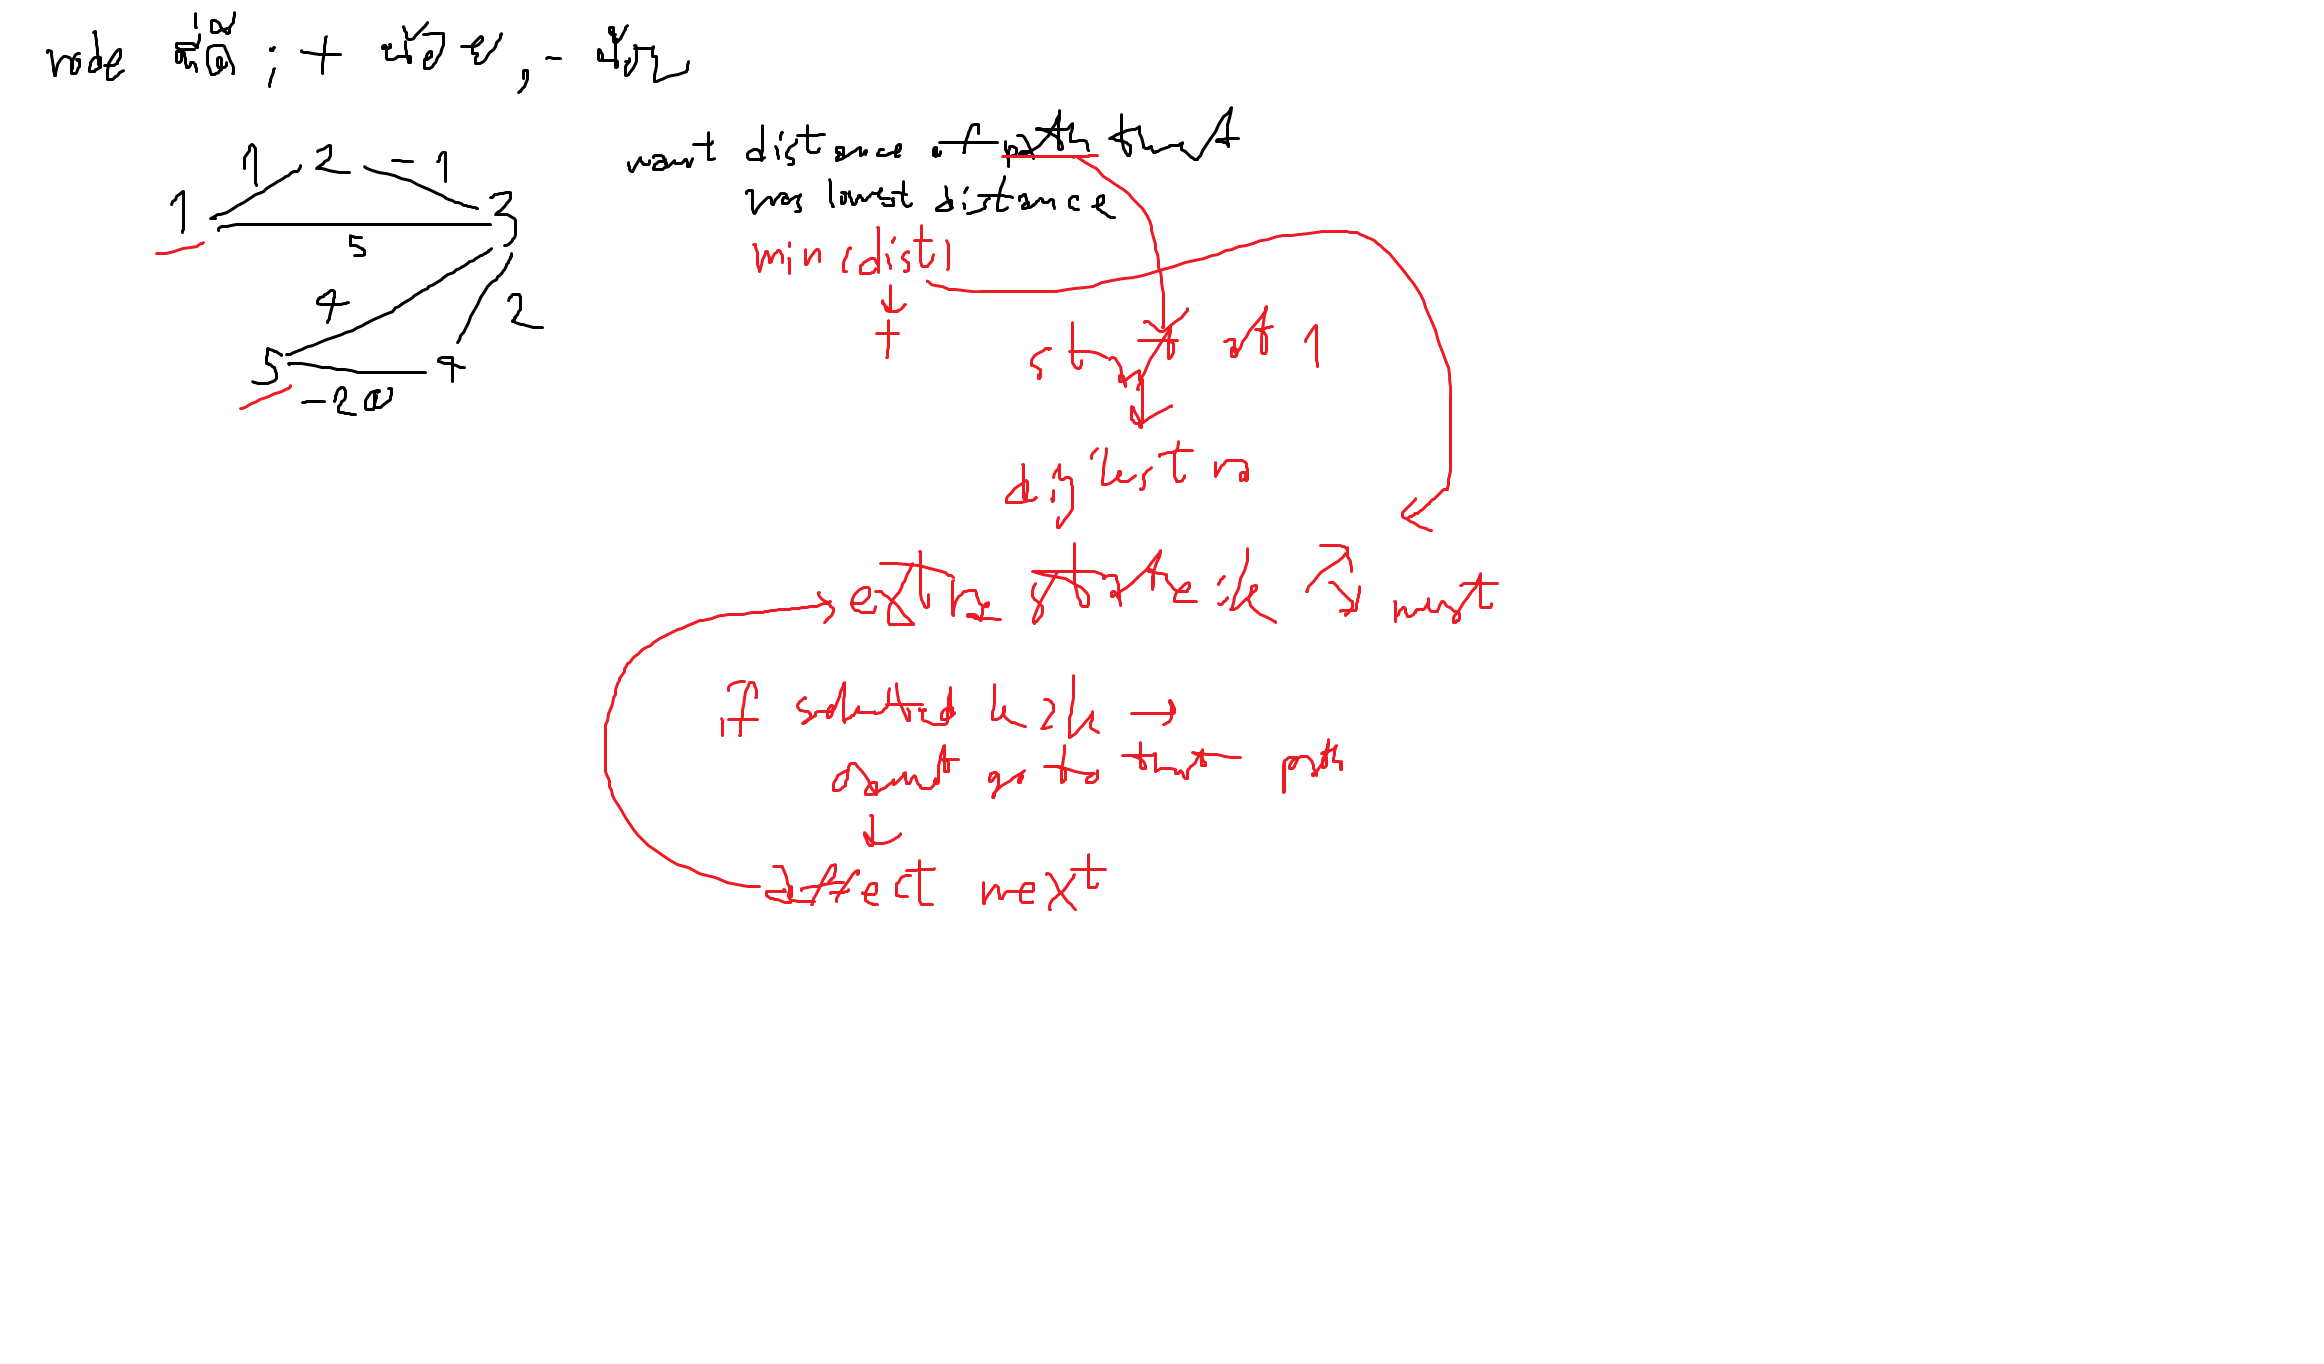 node ; + น้อย, -
1 2 -1
1 3
5
4 2
5 4
-20
want distance of path that
has lowest distance
min(dist)
+
start at 1
dijkstra
extra state : k must
if selected k 2k →
go to that path
affect next